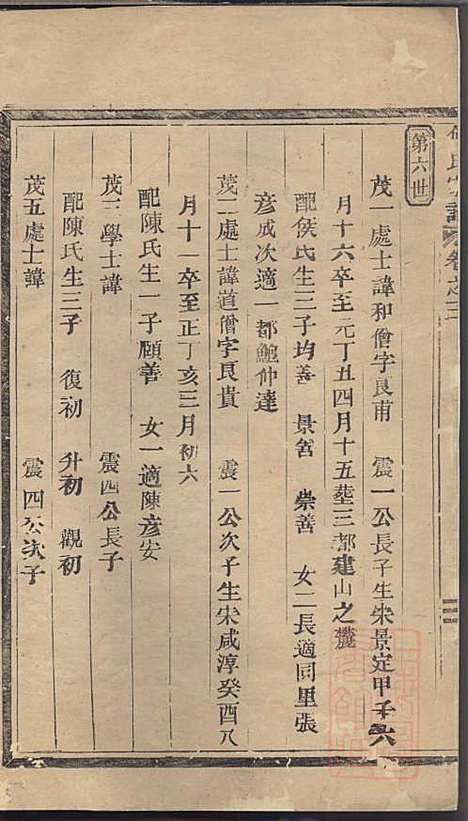 氏宗譜 卷之三
第六世
茂一處士諱和僧字良甫 震一公長子生宋景定甲子六
月十六卒至元丁丑四月十五塟三都建山之麓
配侯氏生三子均善 景善 崇善 女二長適同里張
彦成次適一都鮑仲達
茂二處士諱道僧字良貴 震一公次子生宋咸淳癸酉八
月十一卒至正丁亥三月初六
配陳氏生一子顧善 女一適陳彦安
茂三學士諱 震四公長子
配陳氏生三子 復初 升初 觀初
茂五處士諱 震四公次子